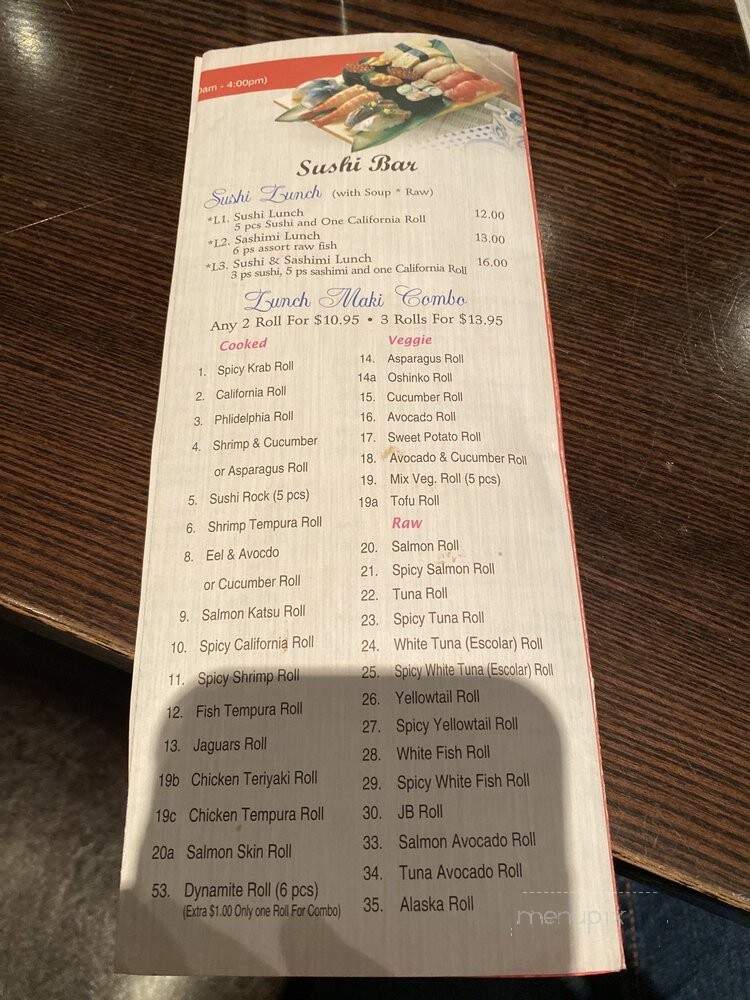 am - 4:00pm)
Sushi Bar
Sushi Lunch (with Soup * Raw)
*L1. Sushi Lunch 12.00
5 pcs Sushi and One California Roll
*L2. Sashimi Lunch 13.00
6 ps assort raw fish
*L3. Sushi & Sashimi Lunch 16.00
3 ps sushi, 5 ps sashimi and one California Roll
Lunch Maki Combo
Any 2 Roll For $10.95 • 3 Rolls For $13.95
Cooked
1. Spicy Krab Roll
2. California Roll
3. Phlidelphia Roll
4. Shrimp & Cucumber
or Asparagus Roll
5. Sushi Rock (5 pcs)
6. Shrimp Tempura Roll
8. Eel & Avocdo
or Cucumber Roll
9. Salmon Katsu Roll
10. Spicy California Roll
11. Spicy Shrimp Roll
12. Fish Tempura Roll
13. Jaguars Roll
19b Chicken Teriyaki Roll
19c Chicken Tempura Roll
20a Salmon Skin Roll
53. Dynamite Roll (6 pcs)
(Extra $1.00 Only one Roll For Combo)
Veggie
14. Asparagus Roll
14a Oshinko Roll
15. Cucumber Roll
16. Avocado Roll
17. Sweet Potato Roll
18. Avocado & Cucumber Roll
19. Mix Veg. Roll (5 pcs)
19a Tofu Roll
Raw
20. Salmon Roll
21. Spicy Salmon Roll
22. Tuna Roll
23. Spicy Tuna Roll
24. White Tuna (Escolar) Roll
25. Spicy White Tuna (Escolar) Roll
26. Yellowtail Roll
27. Spicy Yellowtail Roll
28. White Fish Roll
29. Spicy White Fish Roll
30. JB Roll
33. Salmon Avocado Roll
34. Tuna Avocado Roll
35. Alaska Roll
menupix